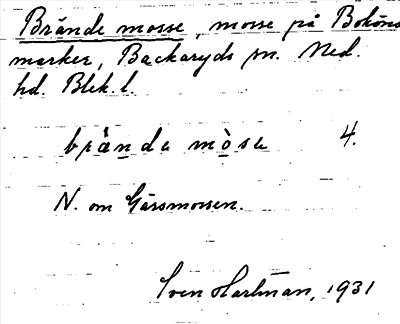 Brände mosse, mosse på Boköns
marker, Backaryds sn. Med.
hd. Blek. l.
brända mòsa 4.
N. om Gässmossen.
Sven Hartman, 1931